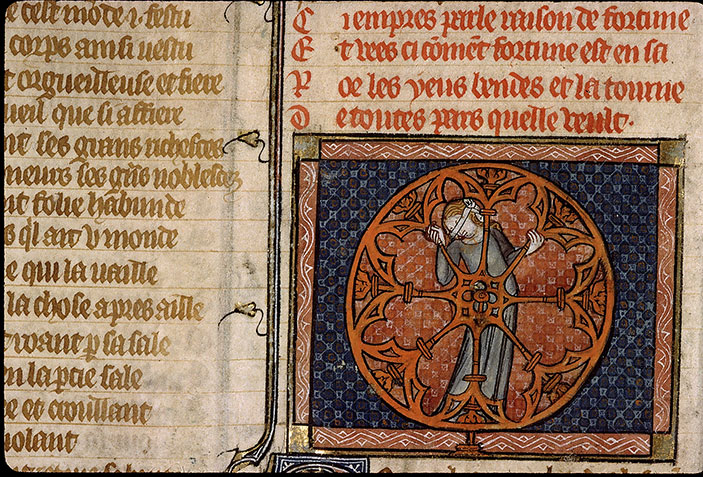 e cest mode . i . festu
corps ainsi uestu
t orgueilleuse et fiere
ueil que si affiere
nt ses grans richesces
neurs ses gns noblesces
nt folie habunde
s ql ait v monde
e qui la uaille
la chose apres aille
tuant p sa sale
n la ptie sale
e et croullant
uolant
Ciempres parle raison de fortune
Et vees ci coment fortune est en sa
Roe les yeus bendes et la tourne
De toutes pars quelle veult .